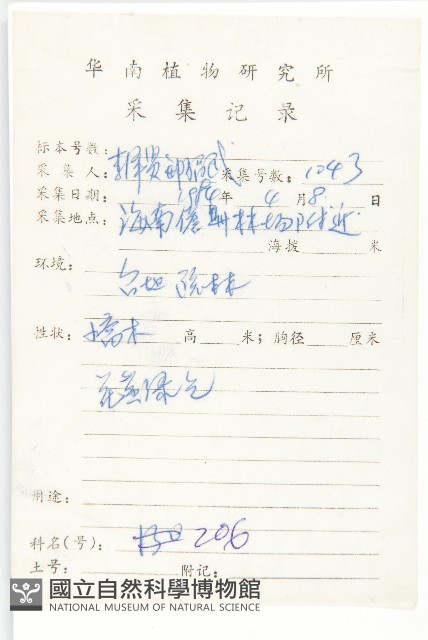 华南植物研究所
采集记录
标本号数:
采集人: 采集号数: 1043
采集日期: 1984年 4月8日
采集地点: 海南儋县林场附近
海拨 米
环境: 台地 疏林
性状: 乔木 高 米; 胸径 厘米
花黄绿色
用途:
科名(号): 206
土号: 附记:
國立自然科學博物館
NATIONAL MUSEUM OF NATURAL SCIENCE